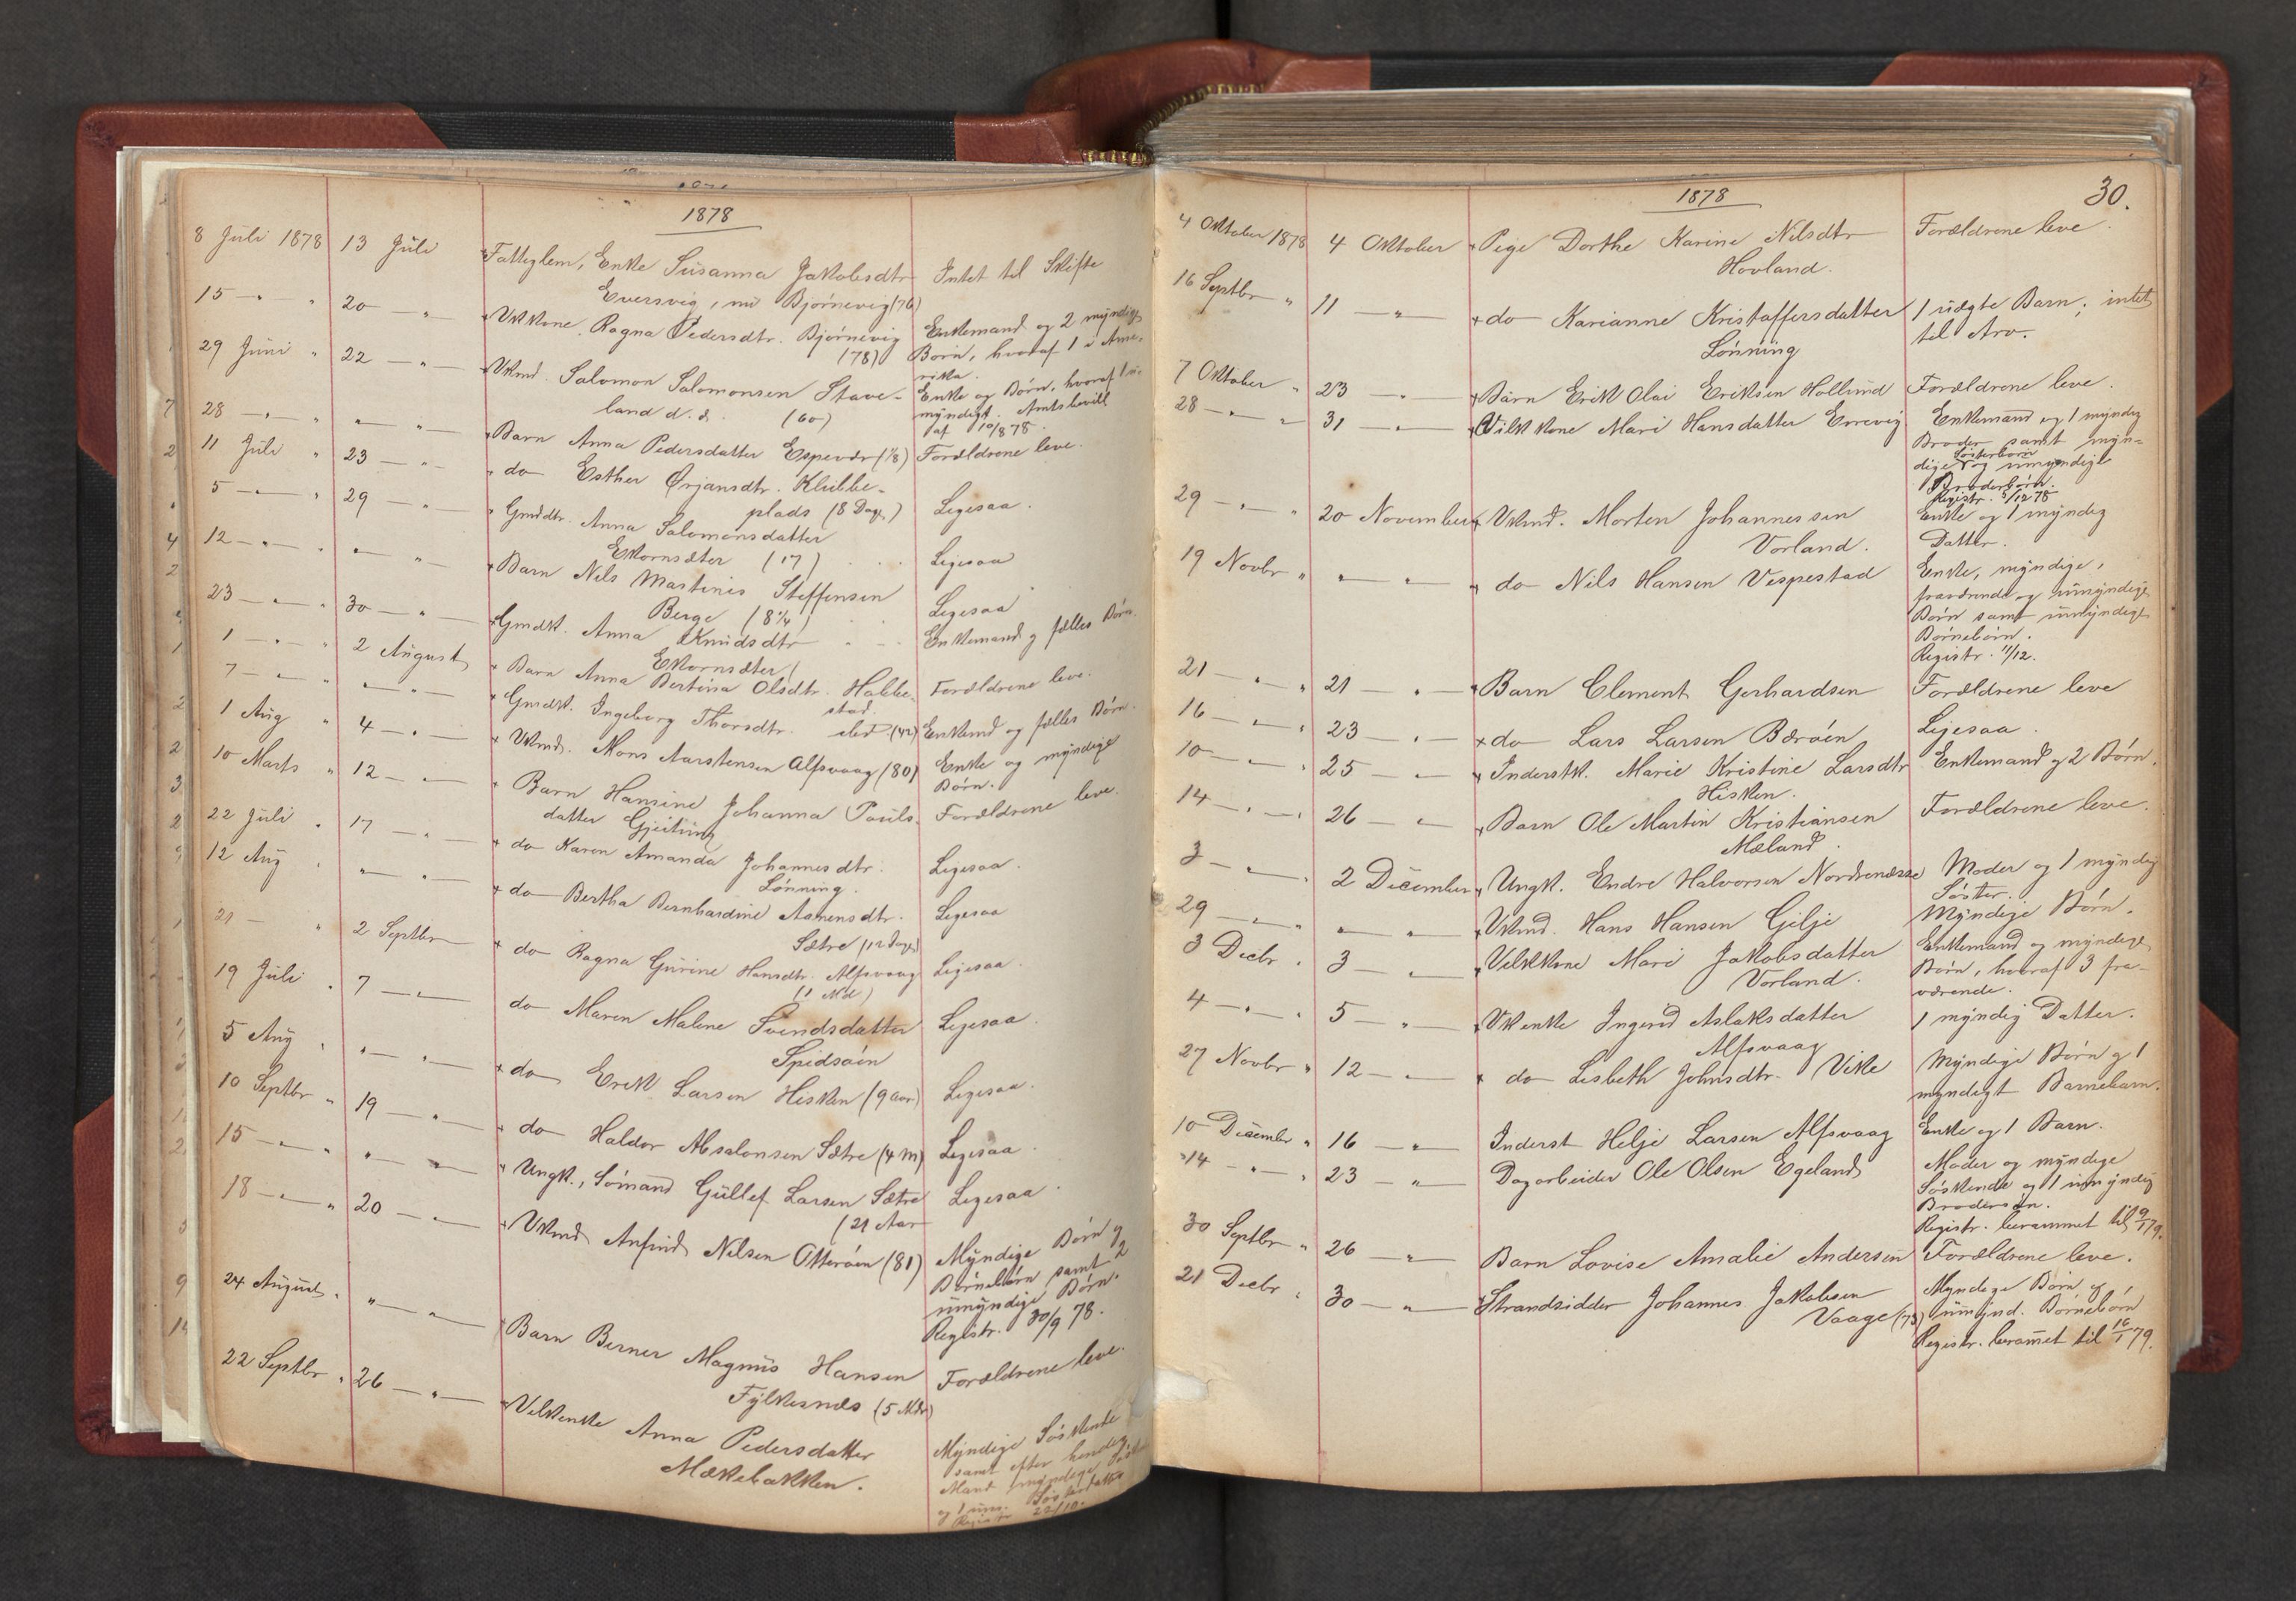 1878
8 Juli 1878 13 Juli Fattiglem, Enke Susanna Jakobsdtr Intet til Skifte
Eversvig, nu Bjørnevig (76)
15 — " — " 20 — " — Vkkone Ragna Pedersdtr. Bjørnevig Enkemand og 2 myndige
(78) Børn, hvoraf 1 i Ame-
rika.
29 Juni " 22 — " — Vkmd. Salomon Salomonsen Stave- Enke og Børn, hvoraf 1 u-
land d. æ. (60) myndigt. Amtsbevill
af 10/8 78.
28 — " — " " — " — Barn Anna Pedersdatter Espevær (1/8) Forældrene leve.
11 Juli " 23 — " — do Esther Ørjansdtr. Klubbe-
plads (8 Dage) Ligesaa.
5 — " — " 29 — " — Gmddtr. Anna Salomonsdatter
Ekornsæter (17) Ligesaa
12 — " — " " — " — Barn Nils Martinus Steffensen
Berge (8 1/4) Ligesaa
23 — " — " 30 — " — Gmdk. Anna Knudsdtr Enkemand og fælles Børn.
Ekornsæter (
1 — " — " 2 August Barn Anna Bertina Olsdtr. Habbe- Forældrene leve.
stad.
7 — " — " " — " — Gmdk. Ingeborg Thorsdtr. ibid. (42) Enkemd og fælles Børn.
1 Aug " 4 — " — Vkmd. Mons Aarstensen Alfsvaag (80) Enke og myndige
Børn.
10 Marts " 12 — " — Barn Hansine Johanna Pouls- Forældrene leve.
datter Gjeitung
22 Juli " 17 — " — do Karen Amanda Johannesdtr. Ligesaa.
Lønning.
12 Aug " " — " — do Bertha Bernhardine Asmensdtr. Ligesaa
Sætre (12 Dage)
21 — " 2 Septbr do Ragna Gurine Hansdtr. Alfsvaag Ligesaa.
(1 Md)
19 Juli " 7 — " — do Maren Malene Svendsdatter Ligesaa.
Spidsøen
5 Aug " " — " — do Erik Larsen Hisken (9 Aar) Ligesaa.
10 Septbr " 19 — " — do Haldor Absalonsen Sætre (4 M) Ligesaa.
15 — " — " " — " — Ungk., Sømand Gullef Larsen Sætre Ligesaa.
(21 Aar
18 — " — " 20 — " — Vkmd Anfind Nilsen Otterøen (81) Myndige Børn og
Børnebørn samt 2
umyndige Børn.
Registr. 30/9 78.
24 August " " — " — Barn Berner Magnus Hansen Forældrene leve.
Fylkesnæs (5 Mdr)
22 Septbr " 26 — " — Velkenke Anna Pedersdatter Myndige Søskende
Mækebakken. samt efter hendes
Mand myndige
og 1 um. Søsterdatter
Registr 22/10.
30.
1878
4 Oktober 1878 4 Oktober Pige Dorthe Karine Nilsdtr Forældrene leve.
Hovland.
16 Septbr " 11 — " — do Karianne Kristaffersdatter 1 uægte Barn; intet
Lønning til Arv.
7 Oktober " 23 — " — Barn Erik Olai Eriksen Hollund Forældrene leve.
28 — " — " 31 — " — Vilkkone Mari Hansdatter Ervevig Enkemand og 1 myndig
Broder samt myn-
Søsterbørn
dige og umyndige
Broderbørn.
Registr. 5/12 78
29 — " — " 20 November Vkmd. Morten Johannessen Enke og 1 myndig
Vorland. Datter.
19 Novbr " " — " — do Nils Hansen Vespestad Enke, myndige,
fraværende og umyndige
Børn samt umyndige
Børnebørn.
Registr. 11/12.
21 — " — " 21 — " — Barn Clement Gerhardsen Forældrene leve
16 — " — " 23 — " — do Lars Larsen Bærøen Ligesaa.
10 — " — " 25 — " — Inderstk. Marie Kristine Larsdtr Enkemand og 2 Børn.
Hisken.
14 — " — " 26 — " — Barn Ole Martin Kristiansen Forældrene leve.
Mæland.
3 — " — " 2 December Ungk. Endre Halvorsen Nordrenæsse Moder og 1 myndig
Søster.
29 — " — " " — " — Vkmd. Hans Hansen Gilje Myndige Børn.
3 Decbr " 3 — " — Velkkone Mari Jakobsdatter Enkemand og myndige
Vorland. Børn, hvoraf 3 fra-
værende.
4 — " — " 5 — " — Vkenke Ingerid Aslaksdatter 1 myndig Datter.
Alfsvaag
27 Novbr " 12 — " — do Lisbeth Johnsdtr. Vike Myndige Børn og 1
myndigt Barnebarn.
10 Decembr " 16 — " — Inderst Helje Larsen Alfsvaag Enke og 1 Barn.
14 — " — " 23 — " — Dagarbeider Ole Olsen Egeland Moder og myndige
Søskende og 1 umyndig
Brodersøn.
Registr. berammet til 9/1 79.
30 Septbr " 26 — " — Barn Lovise Amalie Andersen Forældrene leve.
21 Decbr " 30 — " — Strandsidder Johannes Jakobsen Myndige Børn og
Vaage (73) umynd. Børnebørn
Registr. berammet til 16/1 79.